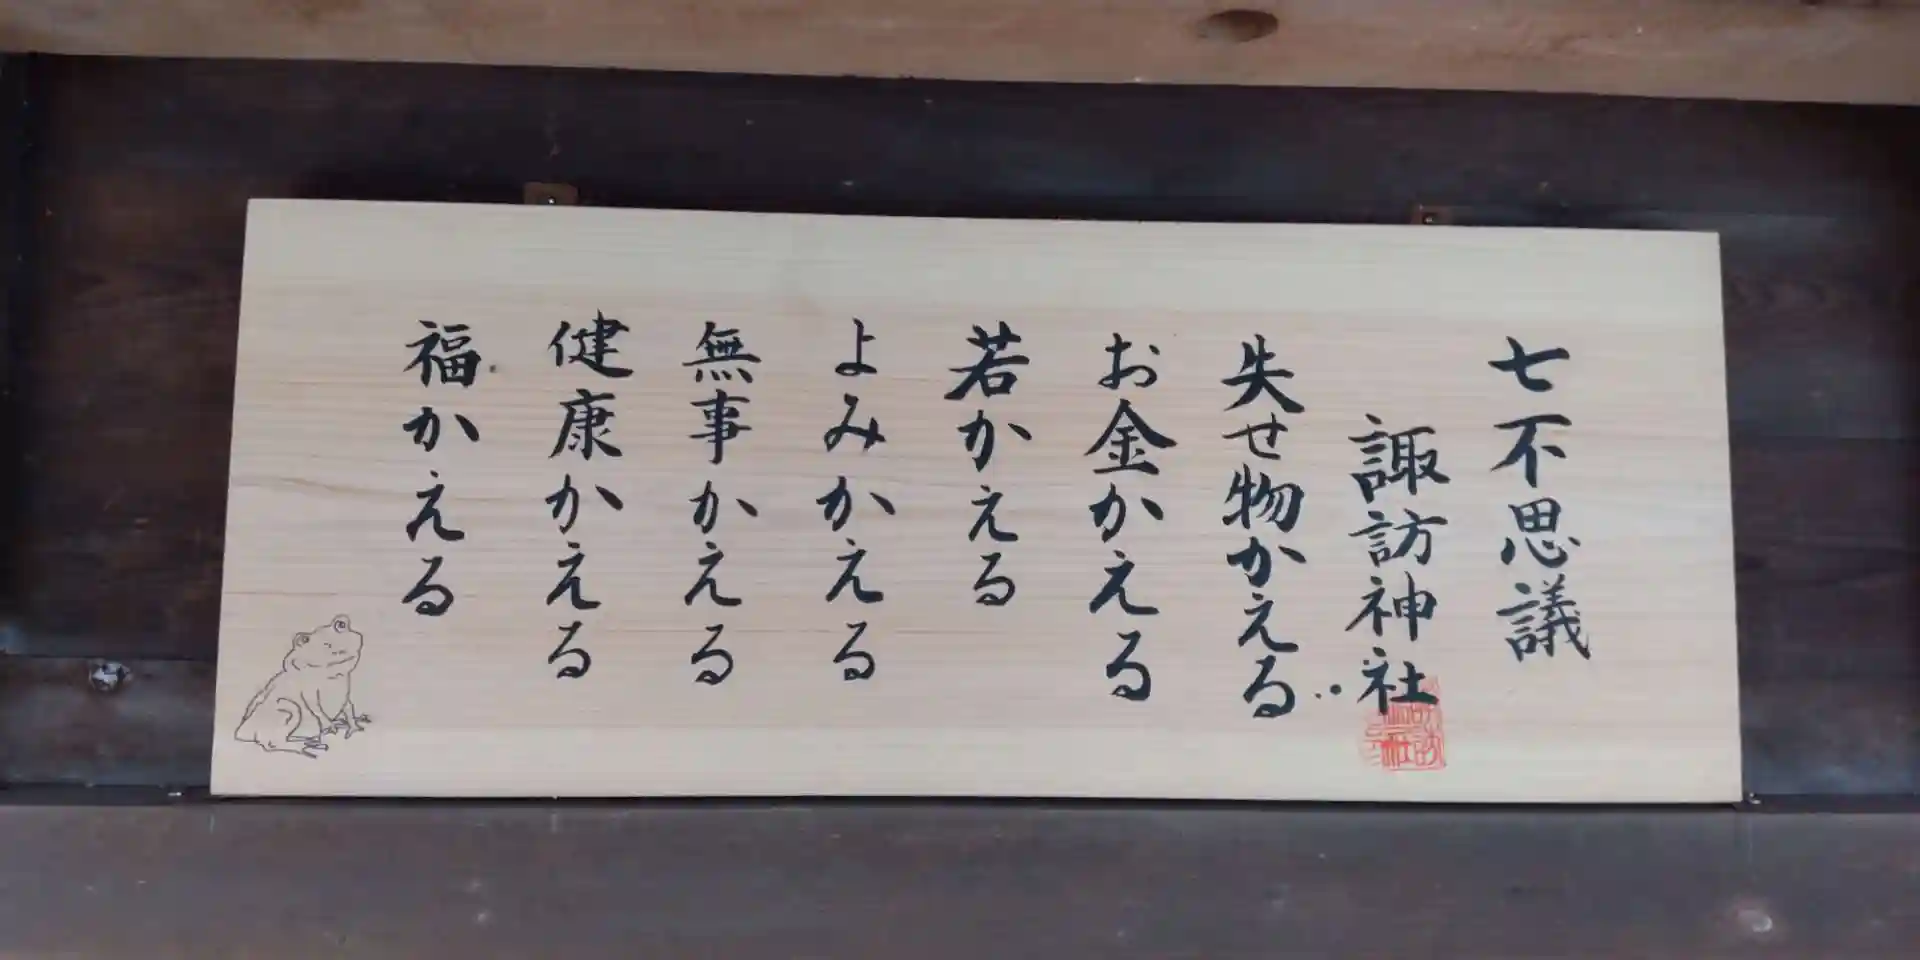 七不思議
諏訪神社
失せ物かえる
お金かえる
若かえる
よみかえる
無事かえる
健康かえる
福かえる